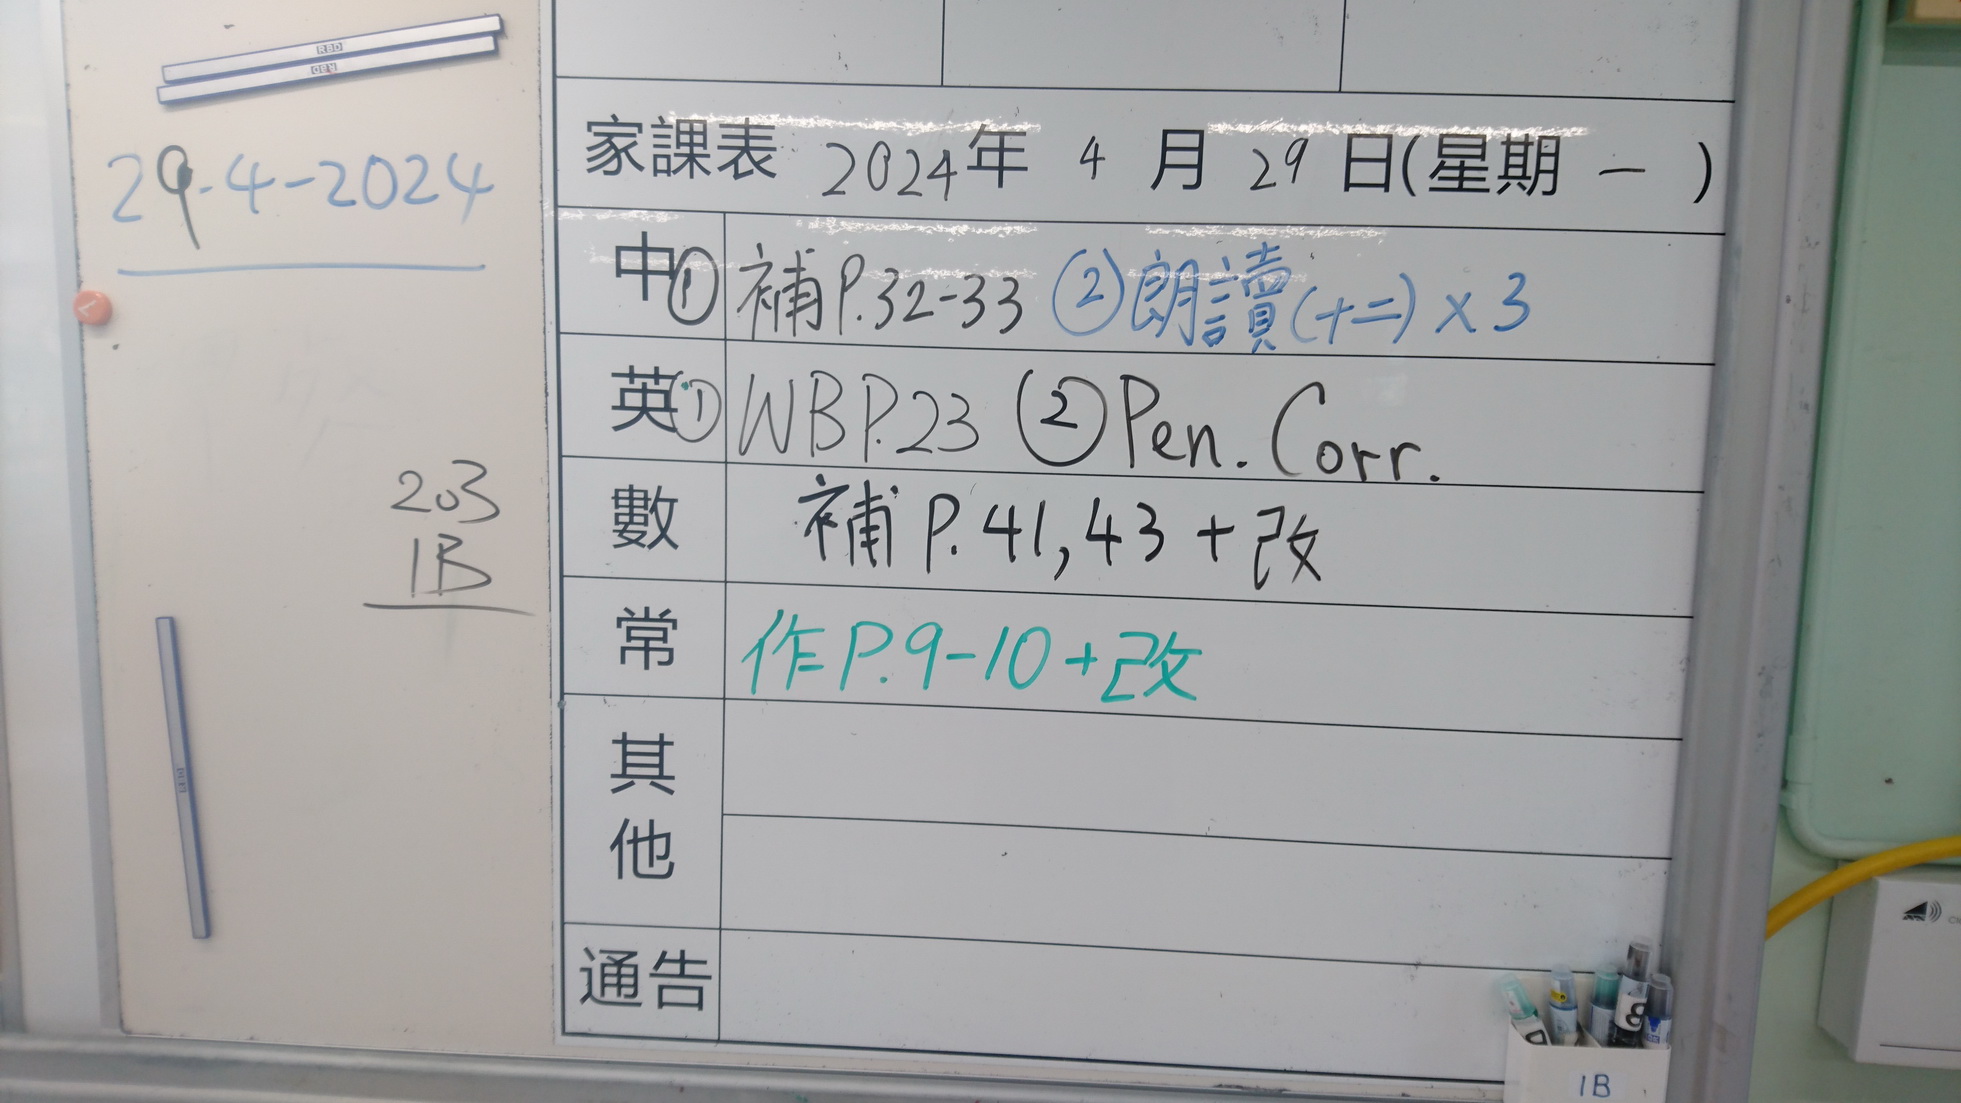 29-4-2024
203
1B
家課表 2024年 4 月 29 日(星期 一 )
中 ① 補P.32-33 ② 朗讀(十二) x 3
英 ① WB P.23 ② Pen. Corr.
數 補 P. 41, 43 + 改
常 作 P.9-10 + 改
其他
通告
1B